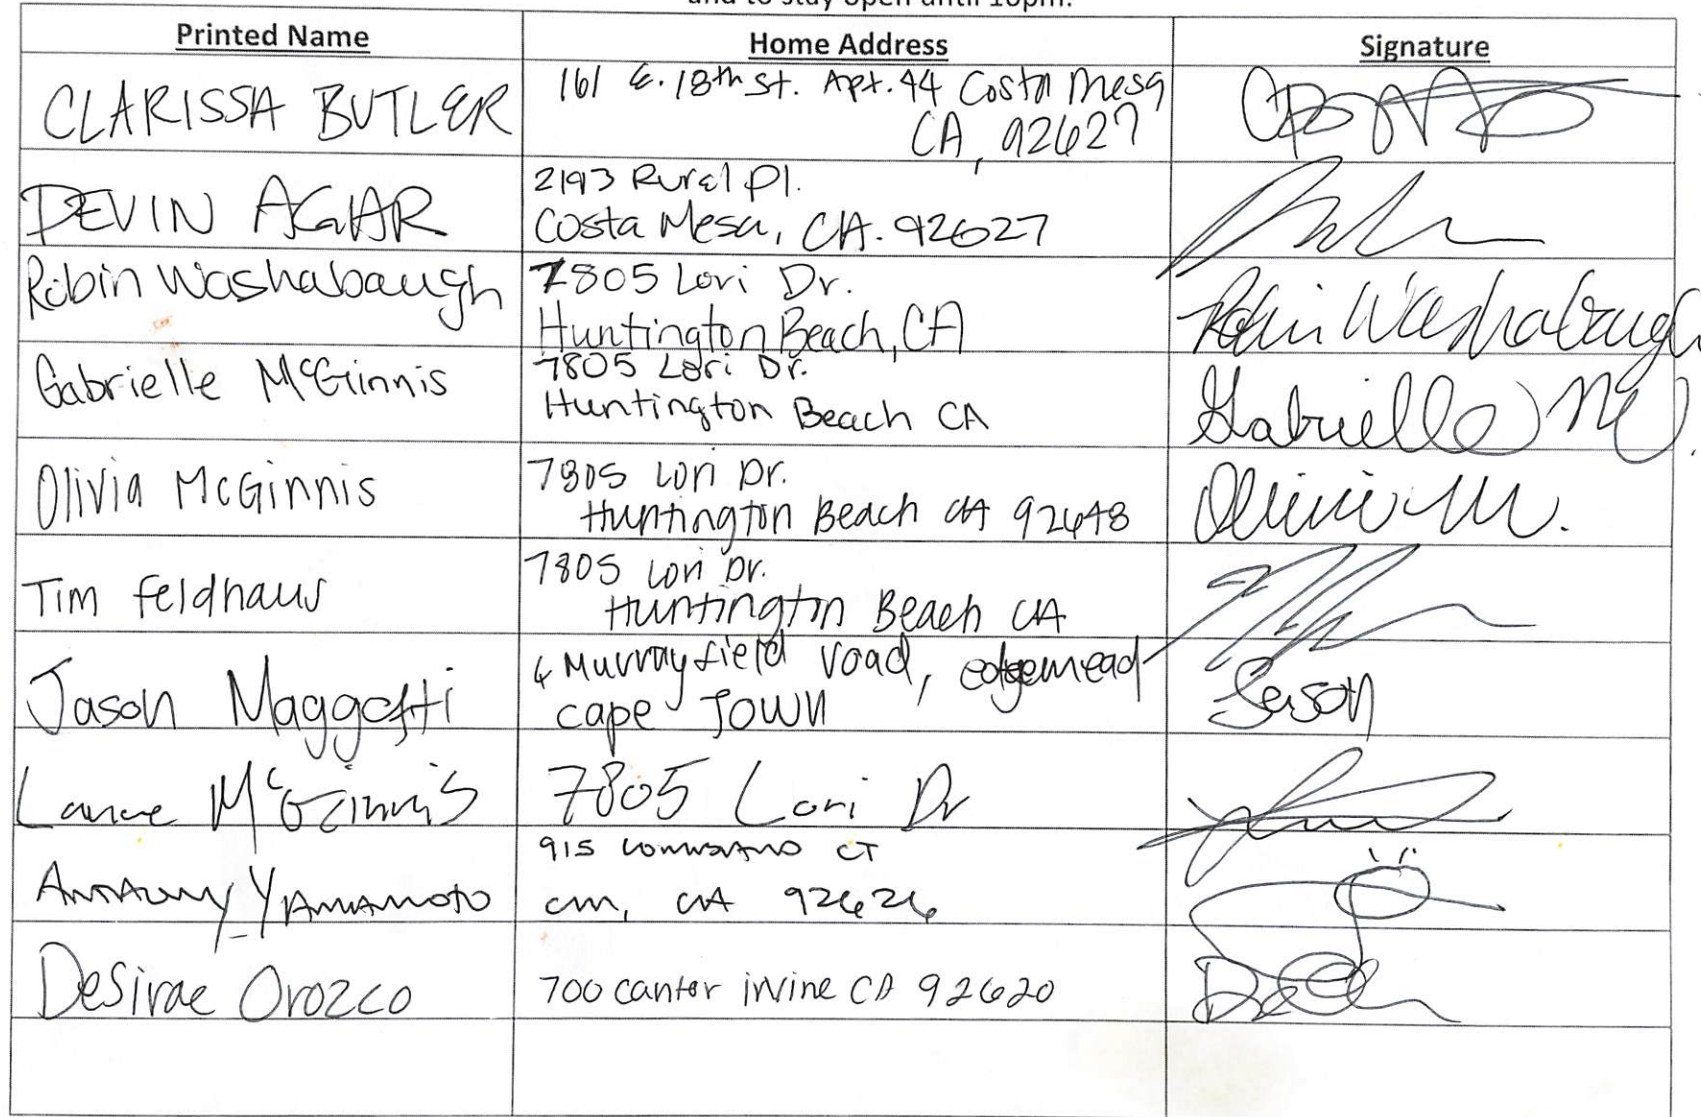 and to stay open until 10pm.
Printed Name Home Address Signature
CLARISSA BUTLER
161 E. 18th St. Apt. 44 Costa Mesa
CA, 92627
DEVIN AGAR
2193 Rural Pl.
Costa Mesa, CA. 92627
Robin Washabaugh
7805 Lori Dr.
Huntington Beach, CA
Robin Washabaugh
Gabrielle McGinnis
7805 Lori Dr.
Huntington Beach CA
Gabrielle M.
Olivia McGinnis
7805 Lori Dr.
Huntington Beach CA 92648
Olivia M.
Tim Feldhaus
7805 Lori Dr.
Huntington Beach CA
Jason Maggotti
4 Murrayfield road, edgemead
cape Town
Jason
Lance McGinnis
7805 Lori Dr
Anthony Yamamoto
915 CT
cm, CA 92626
Desirae Orozco
700 canter irvine CA 92620